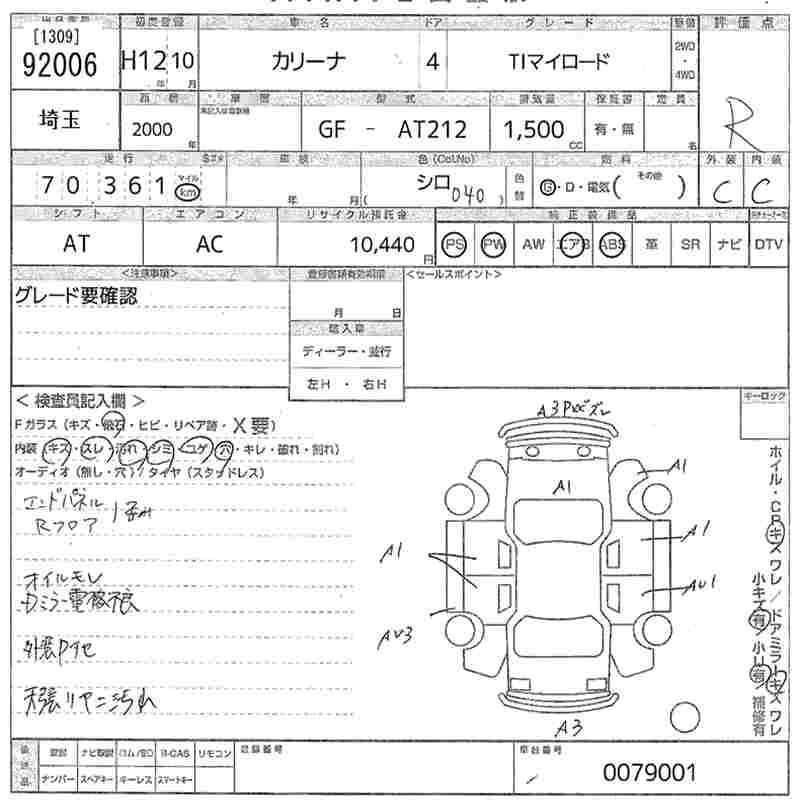 [1309]
92006
車名
ドア
グレード
装備
評価点
H12 10
年 月
カリーナ
4
TIマイロード
2WD
・
4WD
R
埼玉
型式
排気量
保証書
定員
2000
年
GF - AT212
1,500
CC
有・無
名
走行
車検
色(Col.No)
燃料
外装
内装
70361
マイル
km
年 月(
シロ 040 )
色替
G・D・電気( その他 )
C
C
シフト
エアコン
リサイクル預託金
純正装備品
AT
AC
10,440
円
PS
PW
AW
エアB
ABS
革
SR
ナビ
DTV
<注意事項>
<セールスポイント>
グレード要確認
月 日
輸入車
ディーラー・並行
左H ・ 右H
キーロック
< 検査員記入欄 >
Fガラス(キズ・飛石・ヒビ・リペア跡・X要)
内装(キズ・スレ・汚れ・シミ・コゲ・穴・キレ・破れ・割れ)
オーディオ(無し・穴)/タイヤ(スタッドレス)
エンドパネル
Rフロア
オイルモレ
Dミラー電格不良
外装Pアセ
A1
A1
A1
A1
AU1
AU3
A3
ホイル・CPキズワレ/ドアミラーキズワレ
小キズ有/小U有/補修有
後送品
ナビ取説
ロム/SD
B-CAS
リモコン
ナンバー
スペアキー
キーレス
スマートキー
記録番号
車台番号
0079001